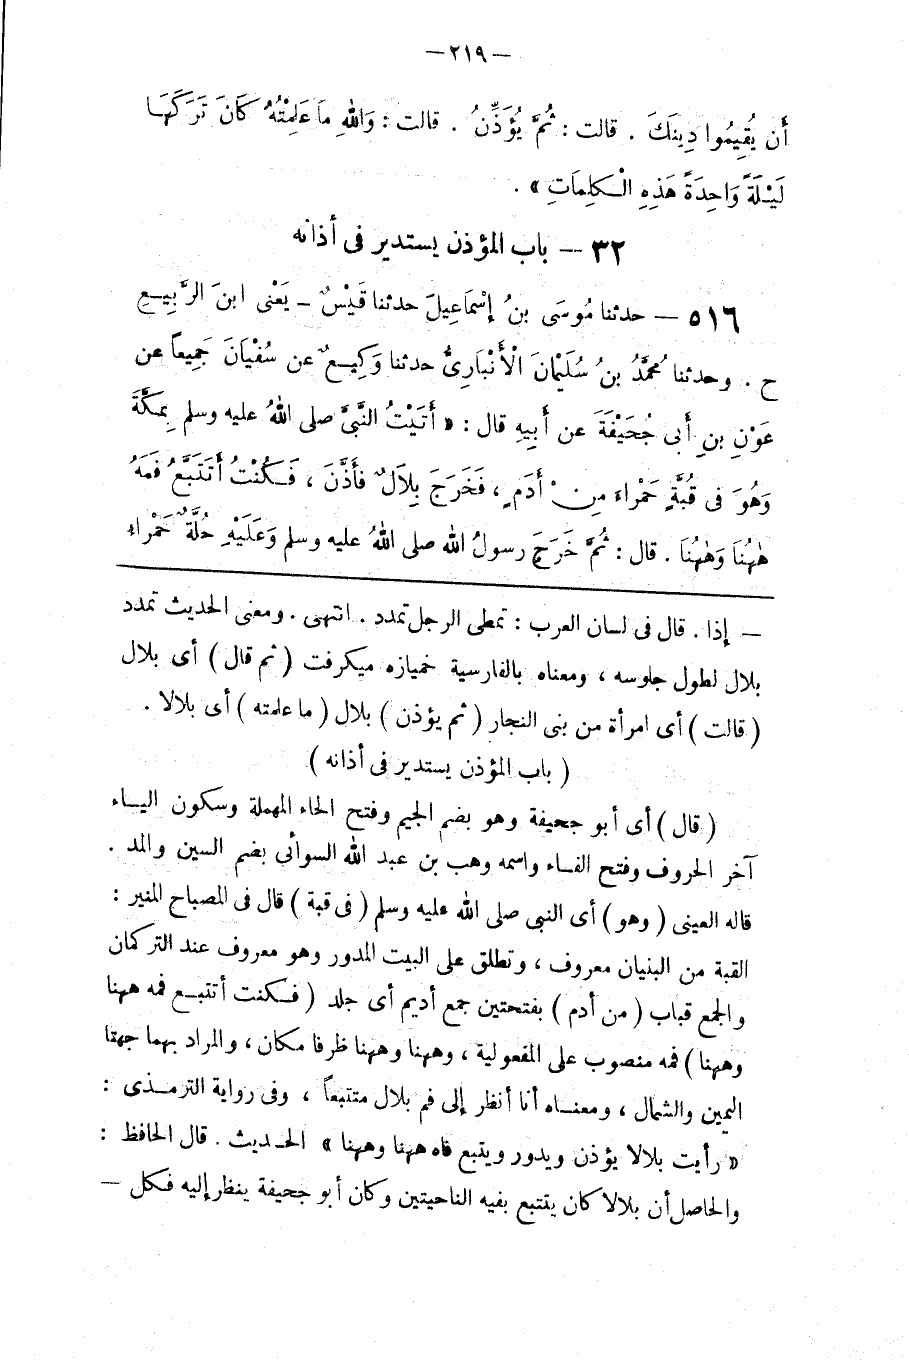 — ٢١٩ —
أَن يُقِيمُوا دِينَكَ . قالت : ثُمَّ يُؤَذِّنُ . قالت : وَاللهِ مَا عَلِمْتُهُ كَانَ تَرَكَهَا
لَيْلَةً وَاحِدَةً هَذِهِ الْكلِمَاتِ » .
٣٢ — باب المؤذن يستدير فى أذانه
٥١٦ — حدثنا مُوسَى بنُ إِسْمَاعِيلَ حدثنا قَيْسٌ – يَعْنى ابنَ الرَّبِيعِ
ح . وحدثنا مُحمَّدُ بنُ سُلَيْمانَ الْأَنْبَارِىُّ حدثنا وَكِيعٌ عن سُفْيَانَ جَمِيعاً عن
عَوْنِ بنِ أَبى جُحَيْفَةَ عن أَبِيهِ قال : « أَتَيْتُ النَّبىَّ صلى اللهُ عليه وسلم بِمَكَّةَ
وَهُوَ فى قُبَّةٍ حَمْراءَ مِنْ أَدَمٍ ، فَخَرَجَ بِلَالٌ فأَذَّنَ ، فَكُنْتُ أَتَتَبَّعُ فَمَهُ
هٰهُنَا وَهٰهُنَا . قال : ثُمَّ خَرَجَ رسولُ الله صلى اللهُ عليه وسلم وَعَلَيْهِ حُلَّةٌ حَمْراءُ
— إذا . قال فى لسان العرب : تمطى الرجل تمدد . انتهى . ومعنى الحديث تمدد
بلال لطول جلوسه ، ومعناه بالفارسية خميازه ميكرفت ( ثم قال ) أى بلال
( قالت ) أى امرأة من بنى النجار ( ثم يؤذن ) بلال ( ما علمته ) أى بلالا .
( باب المؤذن يستدير فى أذانه )
( قال ) أى أبو جحيفة وهو بضم الجيم وفتح الحاء المهملة وسكون الياء
آخر الحروف وفتح الفاء واسمه وهب بن عبد الله السوائى بضم السين والمد .
قاله العينى ( وهو ) أى النبى صلى الله عليه وسلم ( فى قبة ) قال فى المصباح المنير :
القبة من البنيان معروف ، وتطلق على البيت المدور وهو معروف عند التركمان
والجمع قباب ( من أدم ) بفتحتين جمع أديم أى جلد ( فكنت أتتبع فمه ههنا
وههنا ) فمه منصوب على المفعولية ، وههنا وههنا ظرفا مكان ، والمراد بهما جهتا
اليمين والشمال ، ومعناه أنا أنظر إلى فم بلال متتبعاً ، وفى رواية الترمذى :
« رأيت بلالا يؤذن ويدور ويتبع فاه ههنا وههنا » الحديث . قال الحافظ :
والحاصل أن بلالا كان يتتبع بفيه الناحيتين وكان أبو جحيفة ينظر إليه فكل —